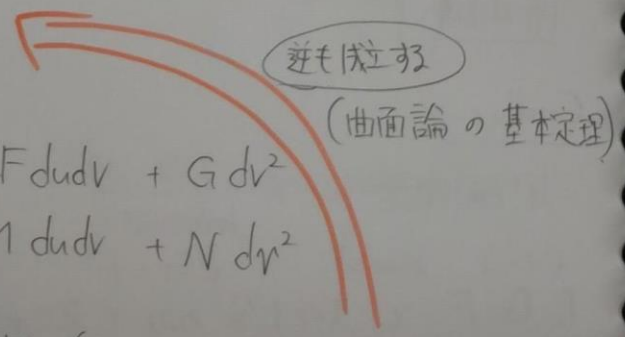 逆も成立する
(曲面論の基本定理)
Fdudv + Gdv²
dudv + Ndv²